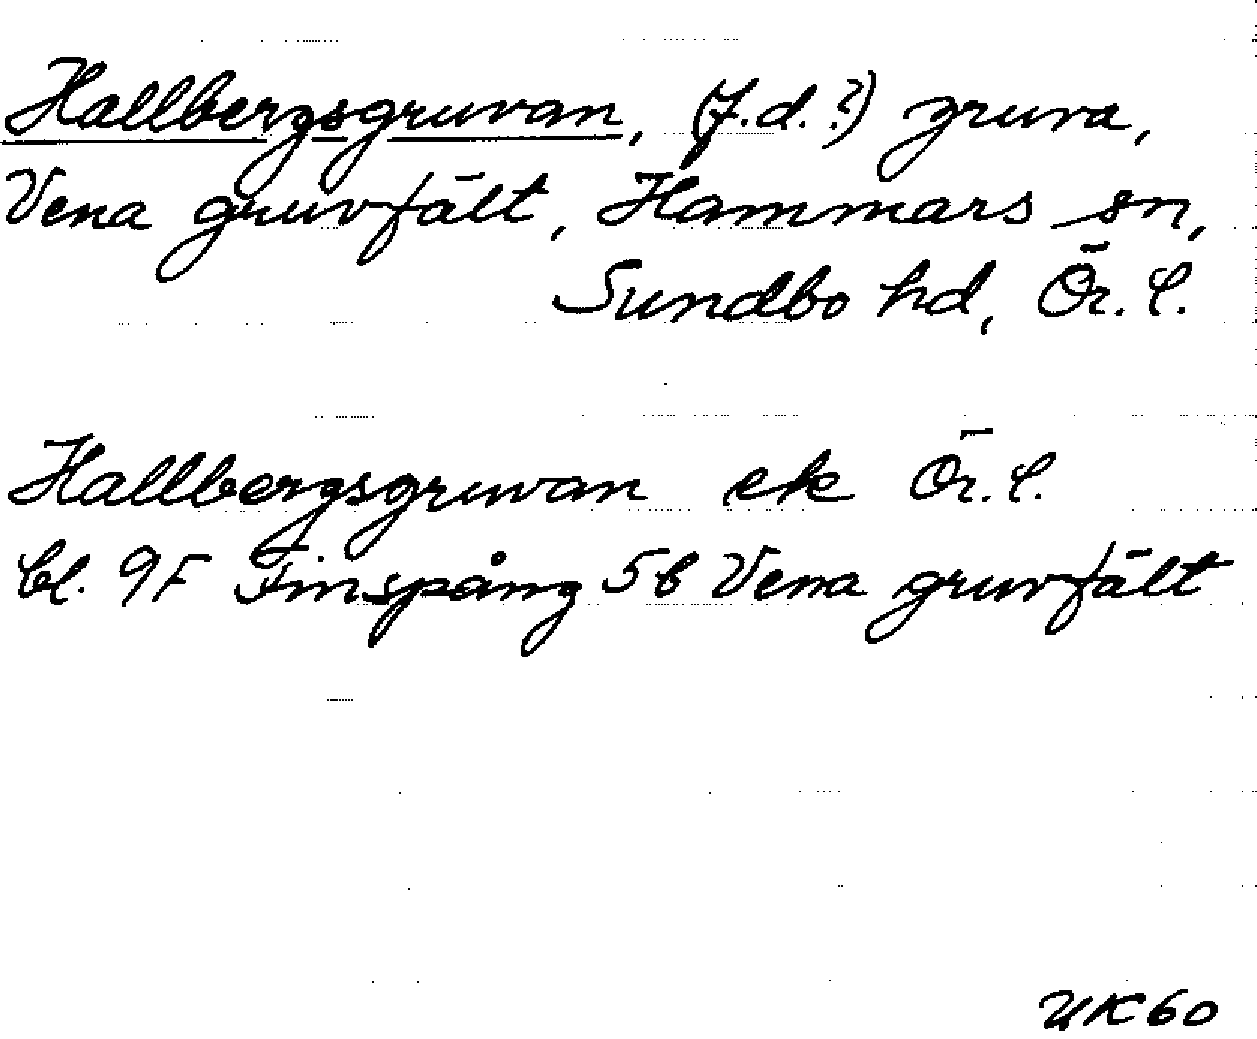 Hallbergsgruvan, (f.d.?) gruva,
Vena gruvfält, Hammars sn,
Sundbo hd, Ör. l.
Hallbergsgruvan ek Ör. l.
bl. 9F Finspång 5b Vena gruvfält
UK60